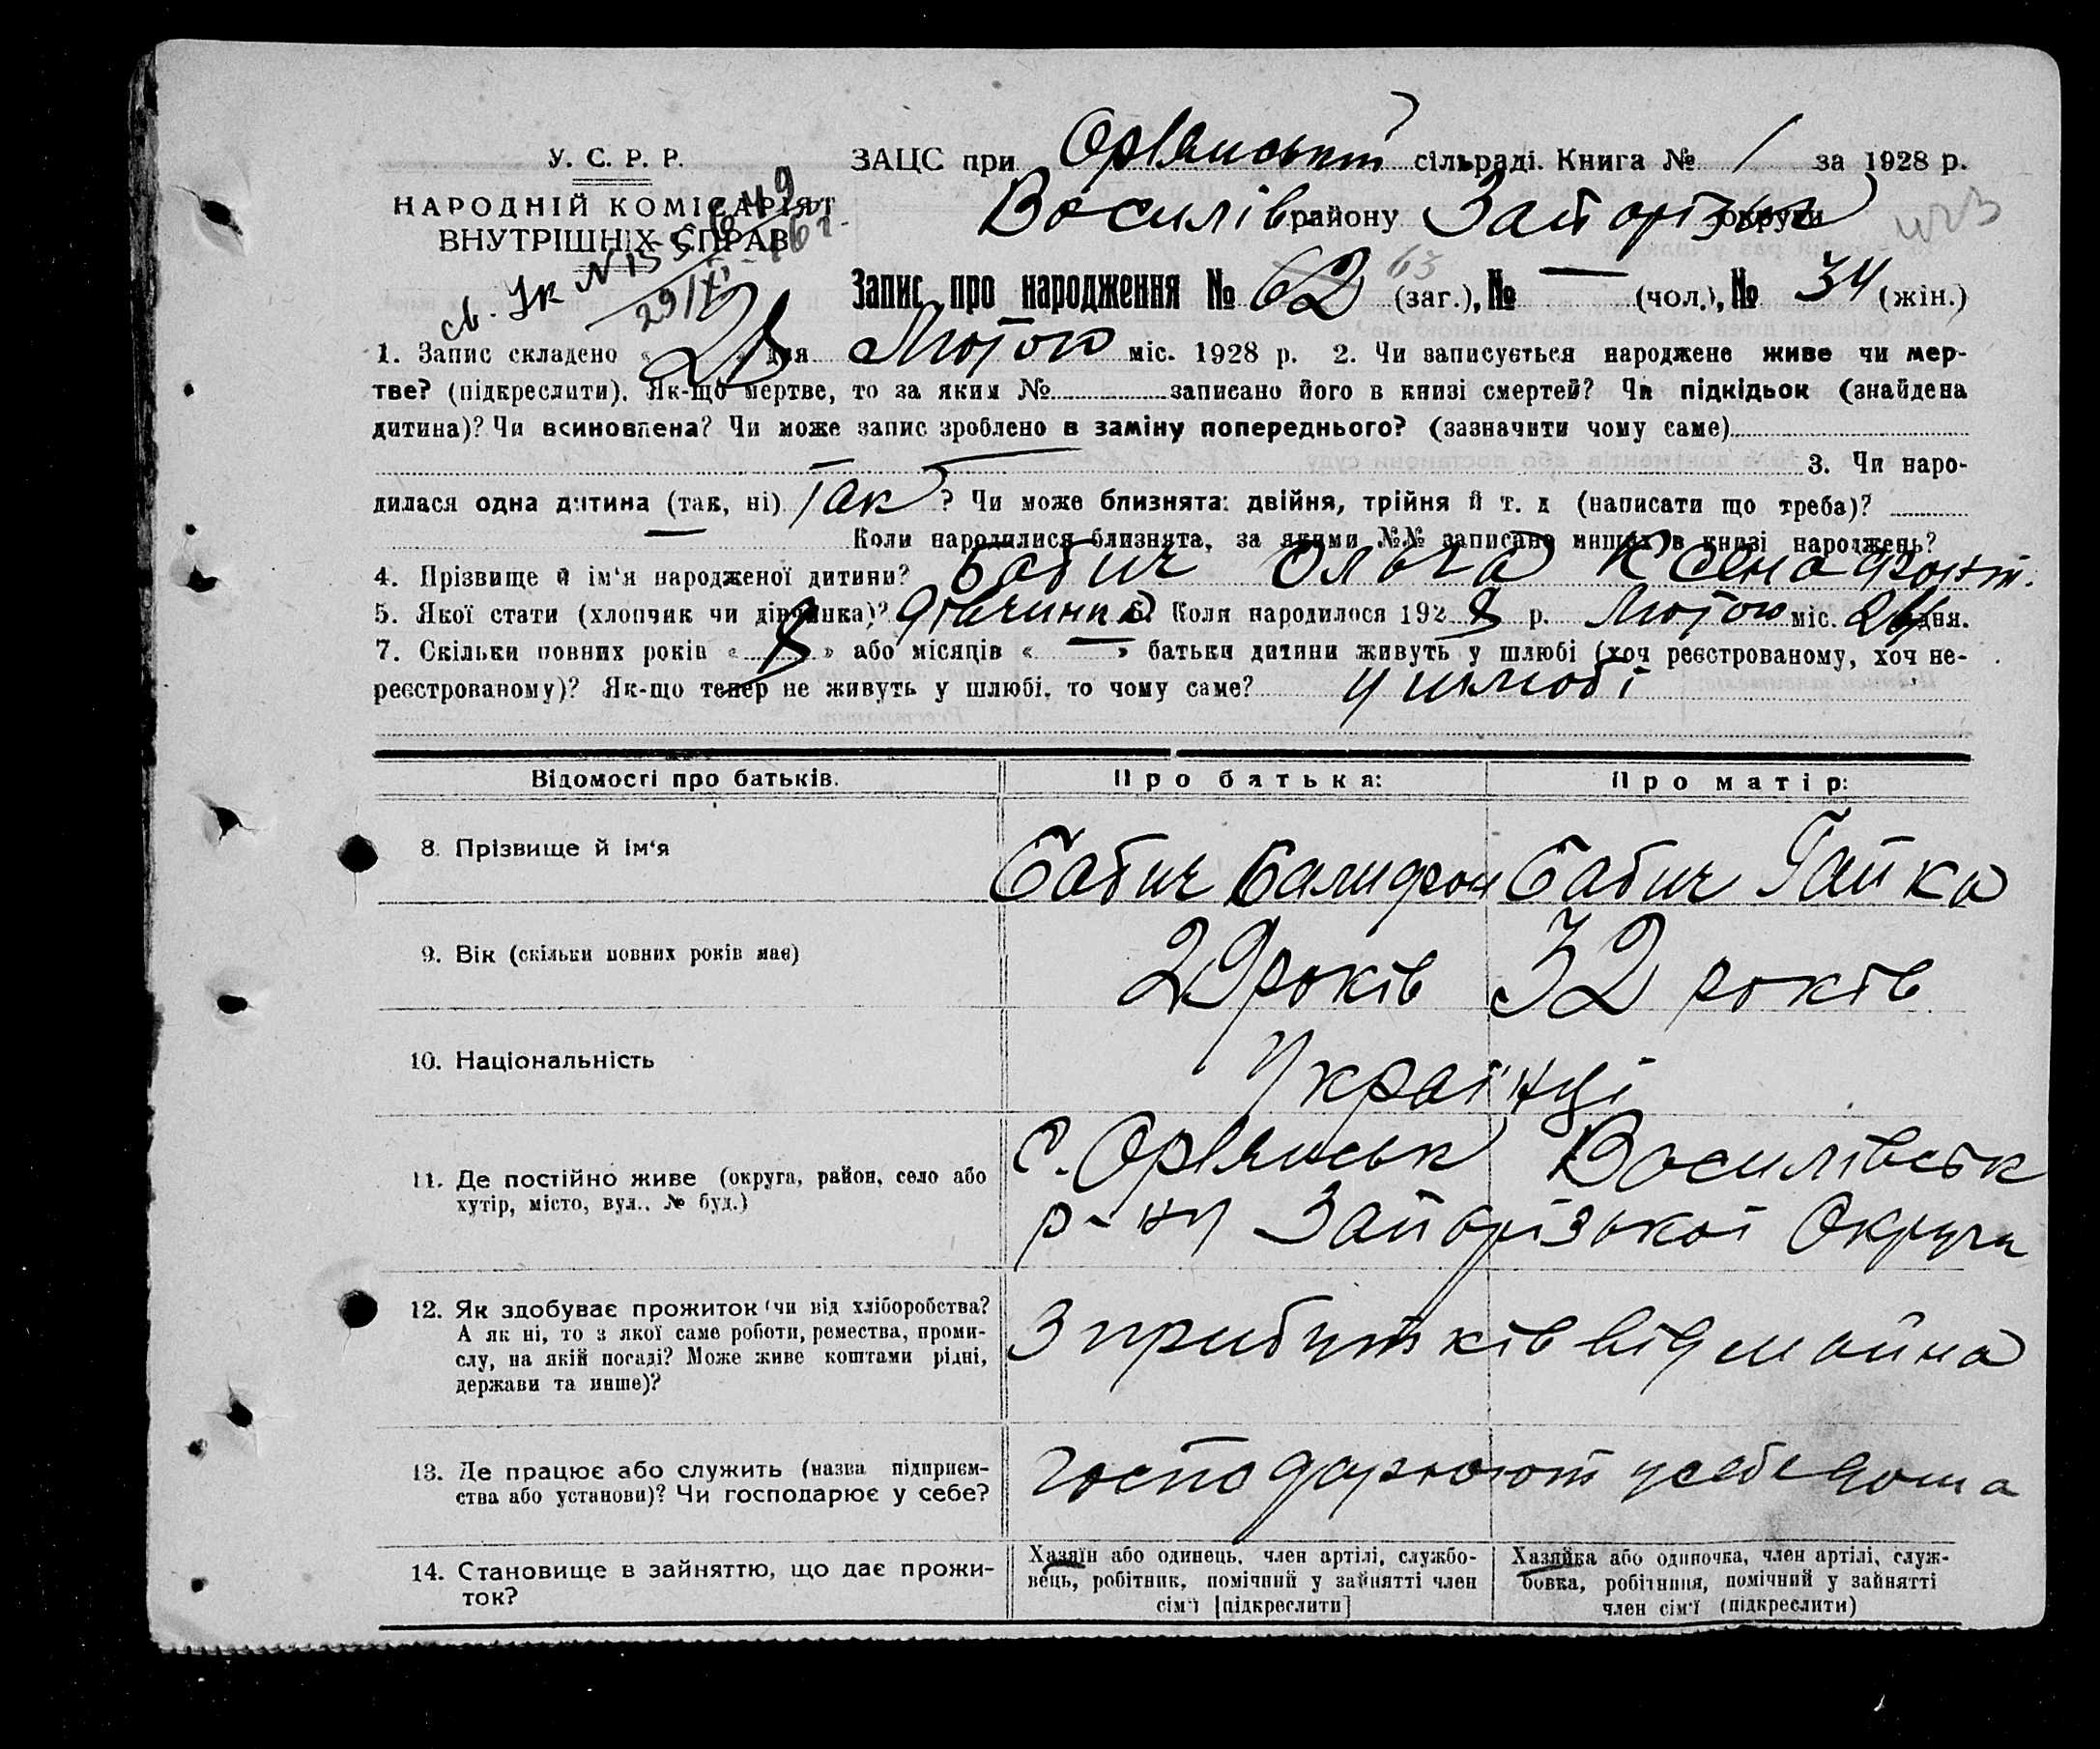 У. С. Р. Р.
НАРОДНІЙ КОМІСАРІЯТ
ВНУТРІШНІХ СПРАВ
св. Ік N 155
29/XI
ЗАЦС при Орлянській сільраді. Книга № 1 за 1928 р.
Василів району Запорізьк округи
Запис про народження № 62 63 (заг.), № — (чол.), № 34 (жін.)
1. Запис складено « 28 » дня Лютого міс. 1928 р. 2. Чи записується народжене живе чи мер-
тве? (підкреслити). Як-що мертве, то за яким № записано його в книзі смертей? Чи підкідьок (знайдена
дитина)? Чи всиновлена? Чи може запис зроблено в заміну попереднього? (зазначити чому саме)
3. Чи наро-
дилася одна дитина (так, ні) Так ? Чи може близнята: двійня, трійня й т. д (написати що треба)?
— Коли народилися близнята, за якими №№ записано инших в книзі народжень?
4. Прізвище й ім'я народженої дитини? Бабич Ольга Ксенофонт.
5. Якої стати (хлопчик чи дівчинка)? Дівчинка 6. Коли народилося 1928 р. Лютого міс. 24 дня.
7. Скільки повних років « 8 » або місяців « — » батьки дитини живуть у шлюбі (хоч реєстрованому, хоч не-
реєстрованому)? Як-що тепер не живуть у шлюбі, то чому саме? у шлюбі
Відомості про батьків. Про батька: Про матір:
8. Прізвище й ім'я Бабич Бабич Гапка
9. Вік (скільки повних років має) 29 років 32 років
10. Національність Українці
11. Де постійно живе (округа, район, село або
хутір, місто, вул.. № буд.)
с. Орлянськ Василівськ
р-ну Запорізької Округи
12. Як здобуває прожиток (чи від хліборобства?
А як ні, то з якої саме роботи, ремества, проми-
слу, на якій посаді? Може живе коштами рідні,
держави та инше)?
З прибутків від майна
13. Де працює або служить (назва підприєм-
ства або установи)? Чи господарює у себе?
господарюют у себе дома
14. Становище в зайняттю, що дає прожи-
ток?
Хазяїн або одинець, член артілі, службо-
вець, робітник, помічний у зайнятті член
сім'ї [підкреслити]
Хазяйка або одиночка, член артілі, служ-
бовка, робітниця, помічний у зайнятті
член сім'ї (підкреслити)